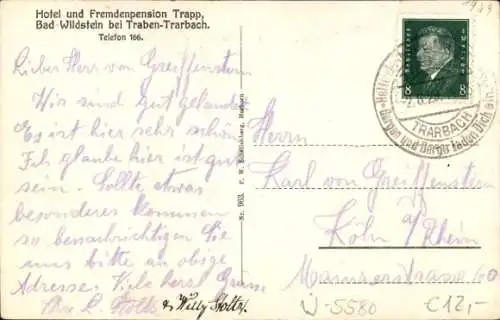 Hotel und Fremdenpension Trapp,
Bad Wildstein bei Traben-Trarbach.
Telefon 166.
Lieber Herr von Greiffenstern
Wir sind gut gelandet
Es ist hier sehr schön
Ich glaube hier ist gut
sein. Sollte etwas
besonderes kommen
so benachrichtigen Sie
uns bitte an obige
Adresse. Viele herz. Grüsse
Ihre L. Stoltz
u. Willy Stoltz.
Nr. 963.
1929
Deutsches Reich
8 8
TRARBACH
Berge laden Dich ein
Herrn
Karl von Greiffenstern
Köln a/ Rhein
Mainzerstrasse 60
Ü-5580
€12,-